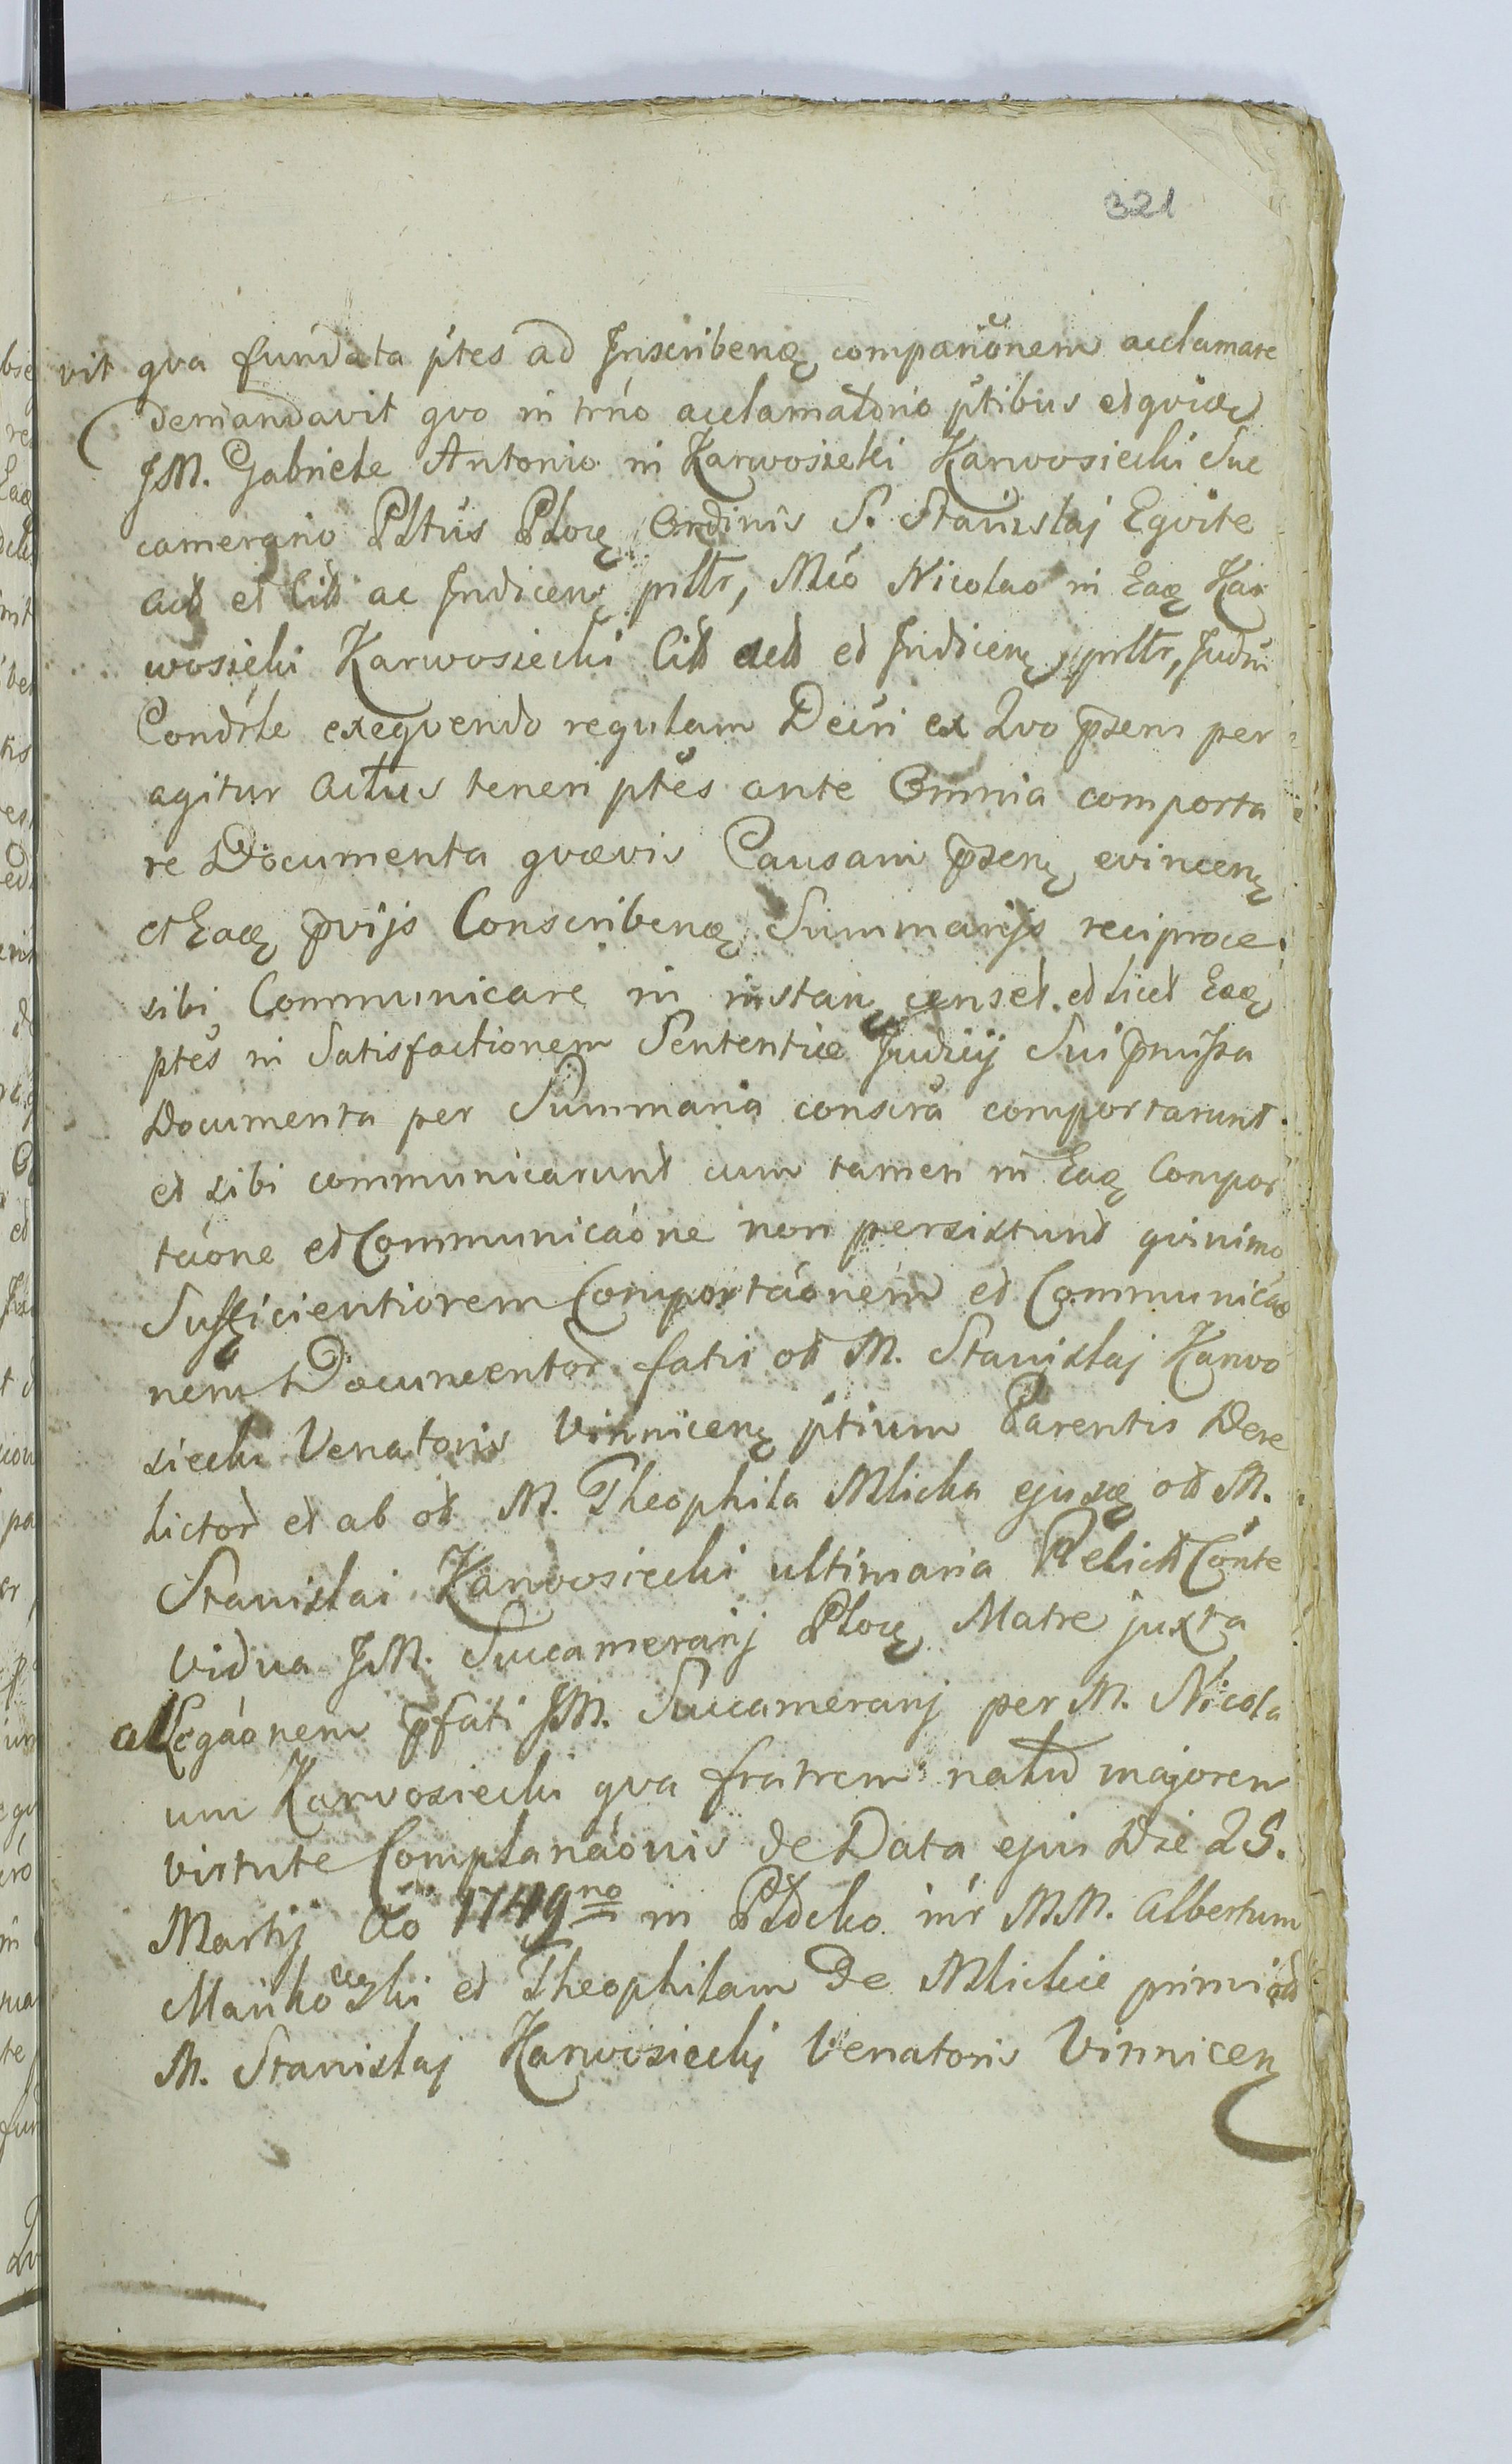 321
vit qva fundata ptes ad Inscribenę comparionem acclamare
demandavit qvo in trno acclamatorio ptibus et qvidę
JM. Gabriele Antonio in Karwosieki Karwosiecki Suc
camerario Pltus Plocę Ordinis S. Stanislaj Eqvite
Actt et Citt ac Indicenę prlltr, Mco Nicolao in Eaę Kar
wosieki Karwosiecki Citt actt et Indicenę, prlltr, Judm
Condrle exeqvendo regulam Decri ex Qvo p̄sens per
agitur Actus teneri ptes ante Omnia comporta
re Documenta qvævis Causam p̄senę evincenę
et Eaę p̄vijs Conscribenę Summarijs reciproce
sibi Communicare in instanę censet. et licet Eaę
ptes in Satisfactionem Sententiæ Judicij Sui p̄missa
Documenta per Summaria conscra comportarunt
et sibi communicarunt cum tamen in Eaę Compor
taone et Communicaone non persistunt qvinimo
Sufficientiorem Comportaonem et Communicao
nem Documentor. fatis ott M. Stanislaj Karwo
siecki Venatoris Vinnicenę ptium Parentis Dere
lictor et ab ott M. Theophila Mlicka ejusę ott M.
Stanislai Karwosiecki ultimaria Relictt Conte
vidua JM. Succamerarij Plocę Matre juxta
allegaonem p̄fati JM. Succamerarij per M. Nicola
um Karwosiecki qva fratrem natu majorem
virtute Complanaonis de Data ejus Die 25.
Martij Ao 1749no in Płocko inr MM. Albertum
et Theophilam De Mlickie primi ott
M. Stanislaj Karwosieckj Venatoris Vinnicenę